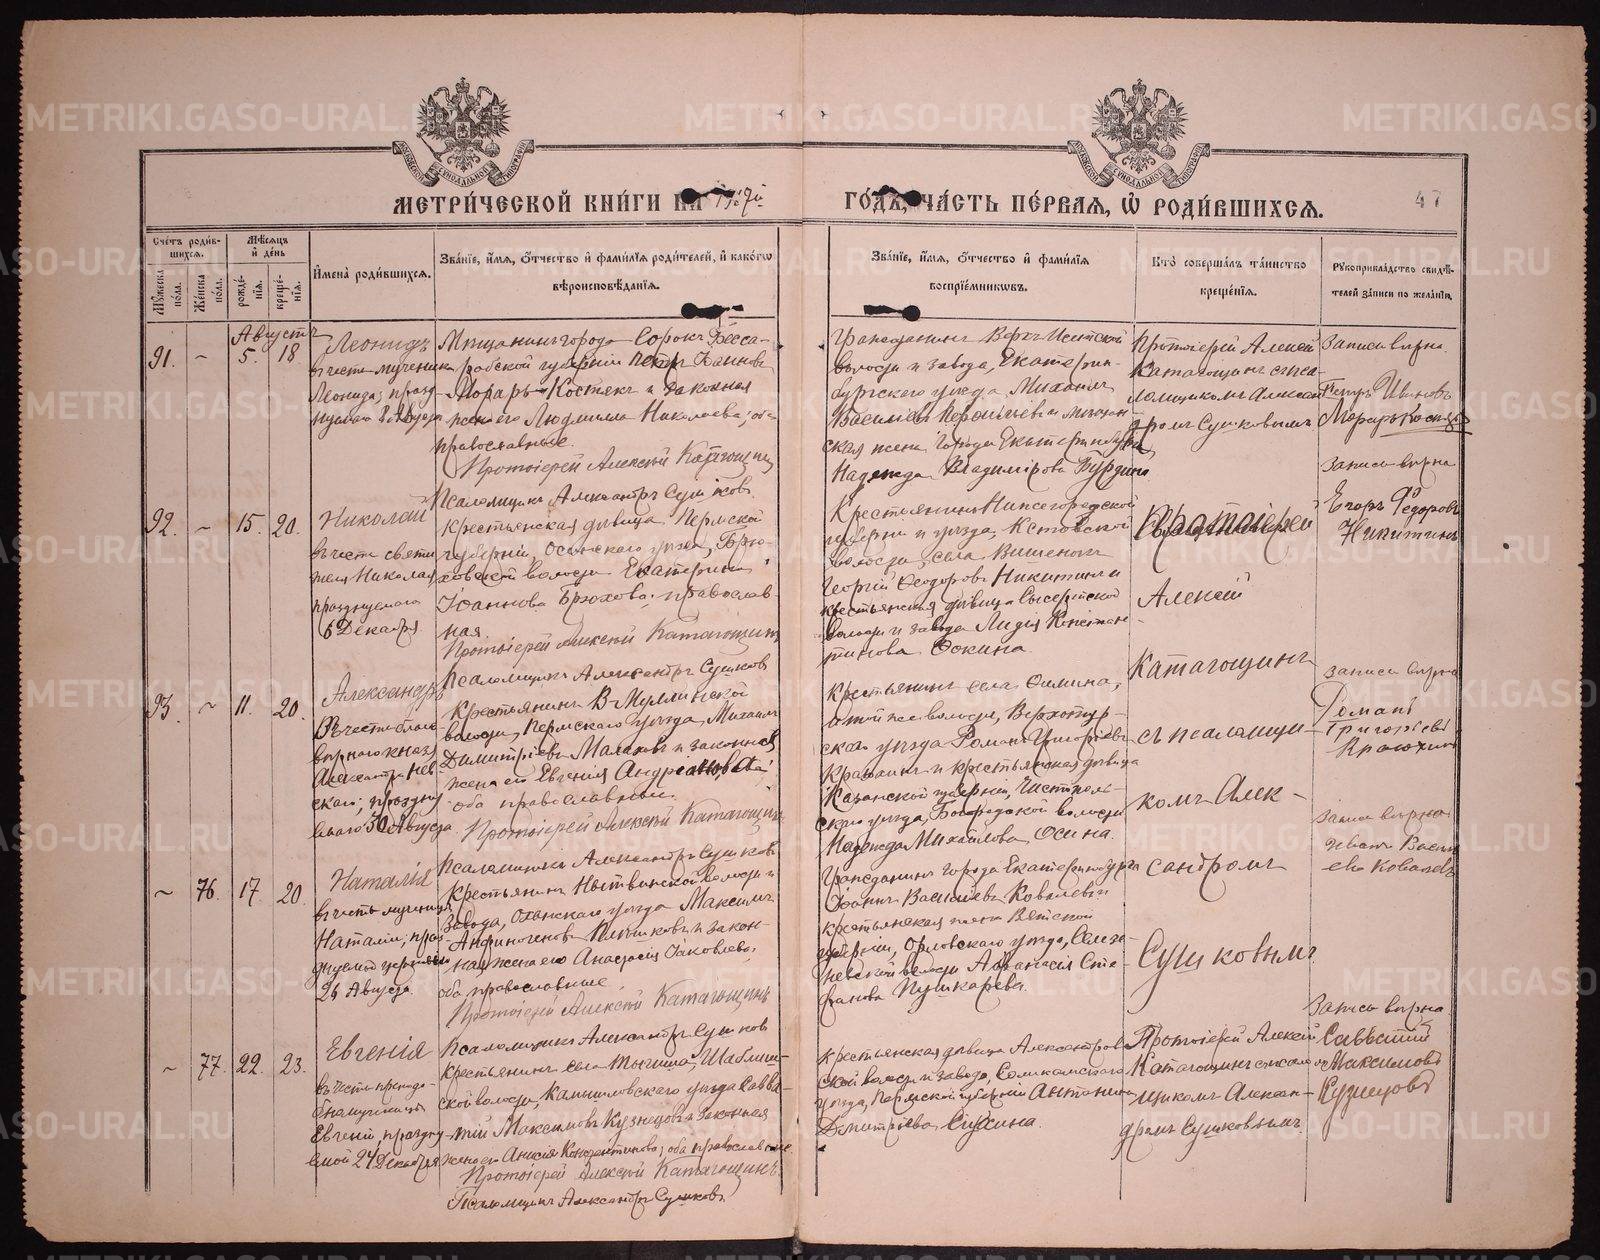 МЕТРИ́ЧЕСКОЙ КНИ́ГИ НА 1917й
ГО́ДЪ, ЧА́СТЬ ПЕ́РВАЯ, Ѡ РОДИ́ВШИХСЯ.
47
Сче́тъ роди́вшихся.
Му́жеска по́ла.
Же́нска по́ла.
Мѣ́сяцъ и҆ де́нь
рожде́нїѧ.
креще́нїѧ.
И҆мена̀ роди́вшихся.
Зва́нїе, и҆́мѧ, ѻ҆́тчество и҆ фами́лїѧ роди́телей, и҆ како́гѡ
вѣроисповѣ́данїѧ.
Зва́нїе, и҆́мѧ, ѻ҆́тчество и҆ фами́лїѧ
воспрїе́мникѡвъ.
Кто̀ соверша́лъ та́инство
креще́нїѧ.
Рꙋкоприкла́дство свидѣ́-
телей за́писи по жела́нїю.
Августъ
91. ~ 5. 18
Леонидъ
въ честь мученика
Леонида, празд-
нуемаго 8 Августа
Мѣщанинъ города Сорокъ Бесса-
рабской губерніи Петръ Іоанновъ
Мораръ-Костякъ и законная
жена его Людмила Николаева, оба
православные.
Протоіерей Алексій Катагощинъ
Псаломщикъ Александръ Сушковъ.
Гражданинъ Верхъ-Исетской
волости и завода, Екатерин-
бургскаго уѣзда, Михаилъ
Василіевъ
ская жена города Екатеринбурга
Надежда Владимірова Бурдина
Протоіерей Алексій
Катагощинъ съ пса-
ломщикомъ Алексан-
дромъ Сушковымъ
Запись вѣрна
Петръ Ивановъ
Мораръ Костякъ
92. ~ 15. 20.
Николай
въ честь святи-
теля Николая
празднуемаго
6 Декабря.
Крестьянская дѣвица Пермской
губерніи, Осинскаго уѣзда, Брю-
ховской волости Екатерина
Іоаннова Брюхова, православ-
ная.
Протоіерей Алексій Катагощинъ
Псаломщикъ Александръ Сушковъ
Крестьянинъ Нижегородской
губерніи и уѣзда, Кстовской
волости, села Вишенокъ
Георгій Ѳеодоровъ Никитинъ и
крестьянская дѣвица Сысертской
волости и завода Лидія Констан-
тинова Оскина.
Протоіерей
Алексій
Катагощинъ
съ псаломщи-
комъ Алек-
сандромъ
Сушковымъ
Запись вѣрна
Егоръ Федоровъ
Никитинъ
93. ~ 11. 20.
Александръ
Въ честь благо-
вѣрнаго князя
Александра Нев-
скаго, праздну-
емаго 30 Августа.
Крестьянинъ В-Муллинской
волости, Пермскаго уѣзда, Михаилъ
Димитріевъ Малаховъ и законная
жена его Евгенія Андреанова,
оба православные.
Протоіерей Алексій Катагощинъ
Псаломщикъ Александръ Сушковъ
Крестьянинъ села
той же волости, Верхотур-
скаго уѣзда Романъ Григоріевъ
Крохинъ и крестьянская дѣвица
Казанской губерніи, Чистополь-
скаго уѣзда, Богородской волости
Надежда Михаилова Осина.
Запись вѣрна
Романъ
Григорьевъ
~ 76. 17. 20.
Наталія
въ честь мученицы
Наталіи, праз-
днуемой
26 Августа.
Крестьянинъ Нытвинской волости и
завода, Оханскаго уѣзда Максимъ
Анфиногеновъ и закон-
ная жена его Анастасія Іаковлева,
оба православные.
Протоіерей Алексій Катагощинъ
Псаломщикъ Александръ Сушковъ
Гражданинъ города Екатеринбурга
Іоаннъ Василіевъ Ковалевъ и
крестьянская жена Вятской
губерніи, Орловскаго уѣзда,
волости Аѳанасія Сте-
фанова Пушкарева.
Запись вѣрна
Иванъ Василь-
евъ Ковалевъ
~ 77. 22. 23.
Евгенія
въ честь преподо-
бномученицы
Евгеніи, праздну-
емой 24 Декабря
Крестьянинъ села
ской волости, Камышловскаго уѣзда Савва-
тій Максимовъ Кузнецовъ и законная
жена его Анисія Константинова, оба православные
Протоіерей Алексій Катагощинъ
Псаломщикъ Александръ Сушковъ
Крестьянская дѣвица Александров-
ской волости и завода, Соликамскаго
уѣзда, Пермской губерніи Антонина
Димитріева
Протоіерей Алексій
Катагощинъ съ псалом-
щикомъ Алексан-
дромъ Сушковымъ
Запись вѣрна
Савватій
Максимовъ
Кузнецовъ
METRIKI.GASO-URAL.RU